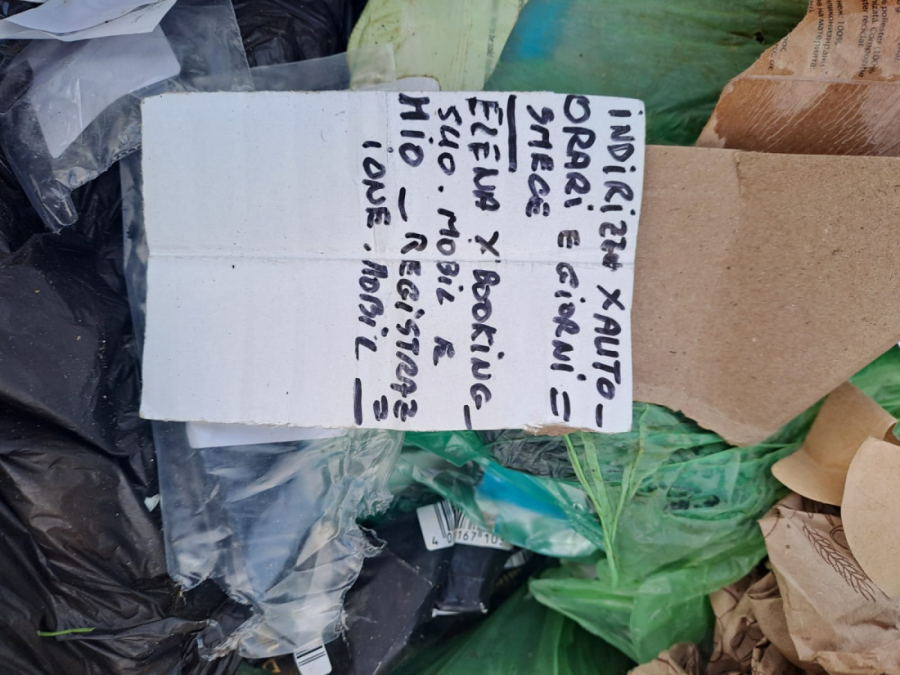 INDIRIZZO X AUTO_
ORARI E GIORNI =
SMEGE
ELENA X BOOKING_
SUO. MOBIL R
MIO _ REGISTRAZ=
IONE. MOBIL _